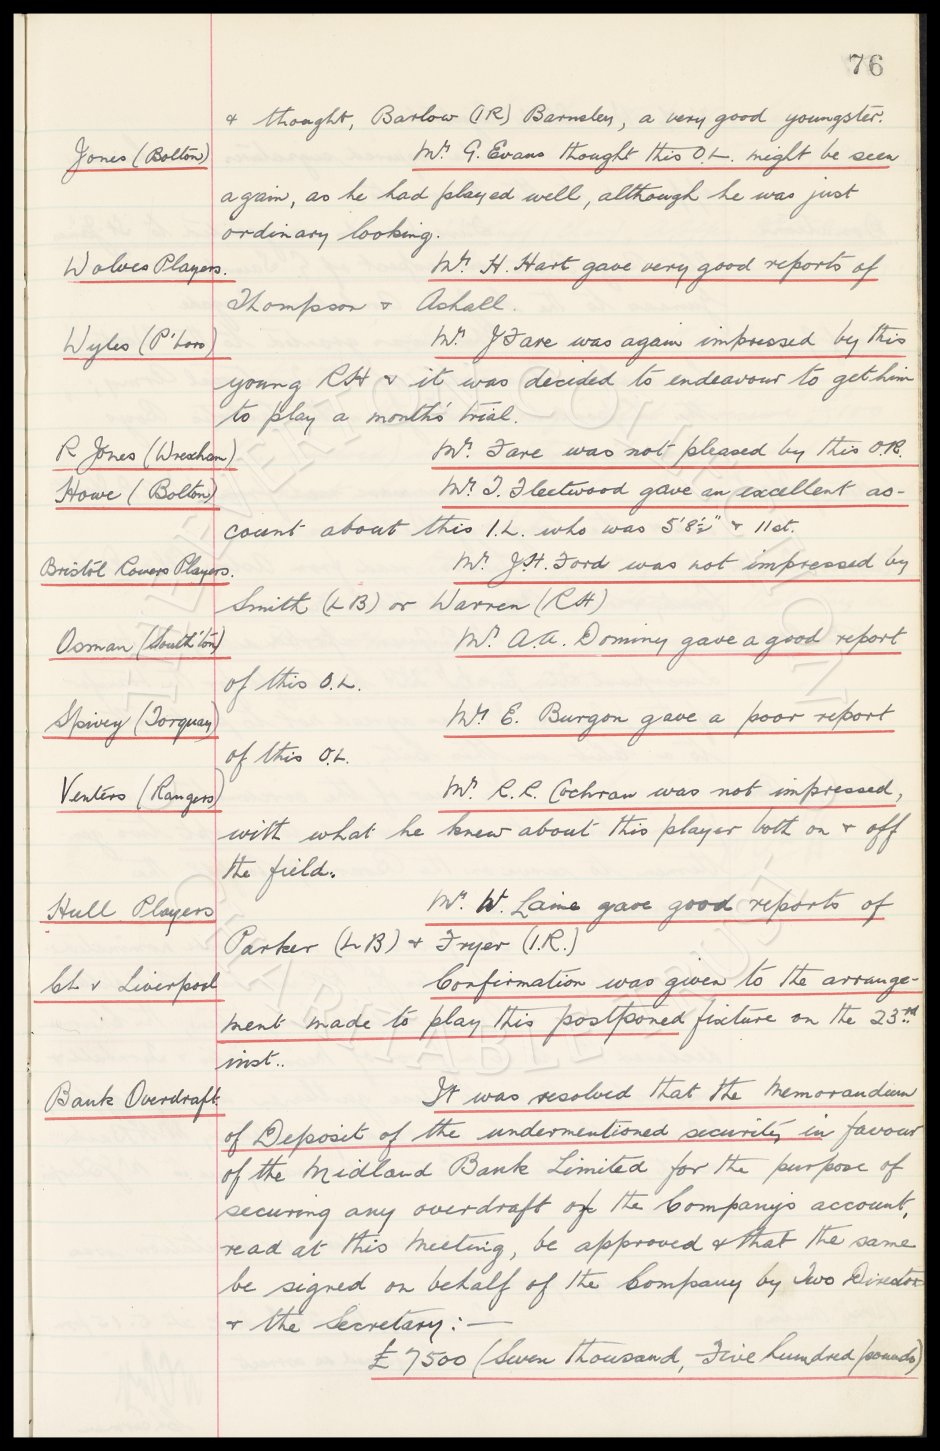 76
& thought, Barlow (IR) Barnsley, a very good youngster.
Jones (Bolton) Mr. G. Evans thought this O.L. might be seen
again, as he had played well, although he was just
ordinary looking.
Wolves Players. Mr. H. Hart gave very good reports of
Thompson & Ashall.
Wyles (P'boro) Mr. J Fare was again impressed by this
young RH & it was decided to endeavour to get him
to play a month's trial.
R Jones (Wrexham) Mr. Fare was not pleased by this O.R.
Howe (Bolton) Mr. T. Fleetwood gave an excellent ac-
count about this I.L. who was 5'8½" & 11st.
Bristol Rovers Players. Mr. J.H. Ford was not impressed by
Smith (LB) or Warren (RH)
Osman (South'ton) Mr. A.A. Dominy gave a good report
of this O.L.
Spivey (Torquay) Mr. E. Burgon gave a poor report
of this O.L.
Venters (Rangers) Mr. R.R. Cochran was not impressed,
with what he knew about this player both on & off
the field.
Hull Players Mr. W. Laine gave good reports of
Parker (LB) & Fryer (I.R.)
CL v Liverpool Confirmation was given to the arrange-
ment made to play this postponed fixture on the 23rd
inst..
Bank Overdraft. It was resolved that the Memorandum
of Deposit of the undermentioned security in favour
of the Midland Bank Limited for the purpose of
securing any overdraft on the Company's account,
read at this Meeting, be approved & that the same
be signed on behalf of the Company by Two Director
& the Secretary: —
£7500 (Seven thousand, Five hundred pounds)
THE EVERTON COLLECTION
CHARITABLE TRUST